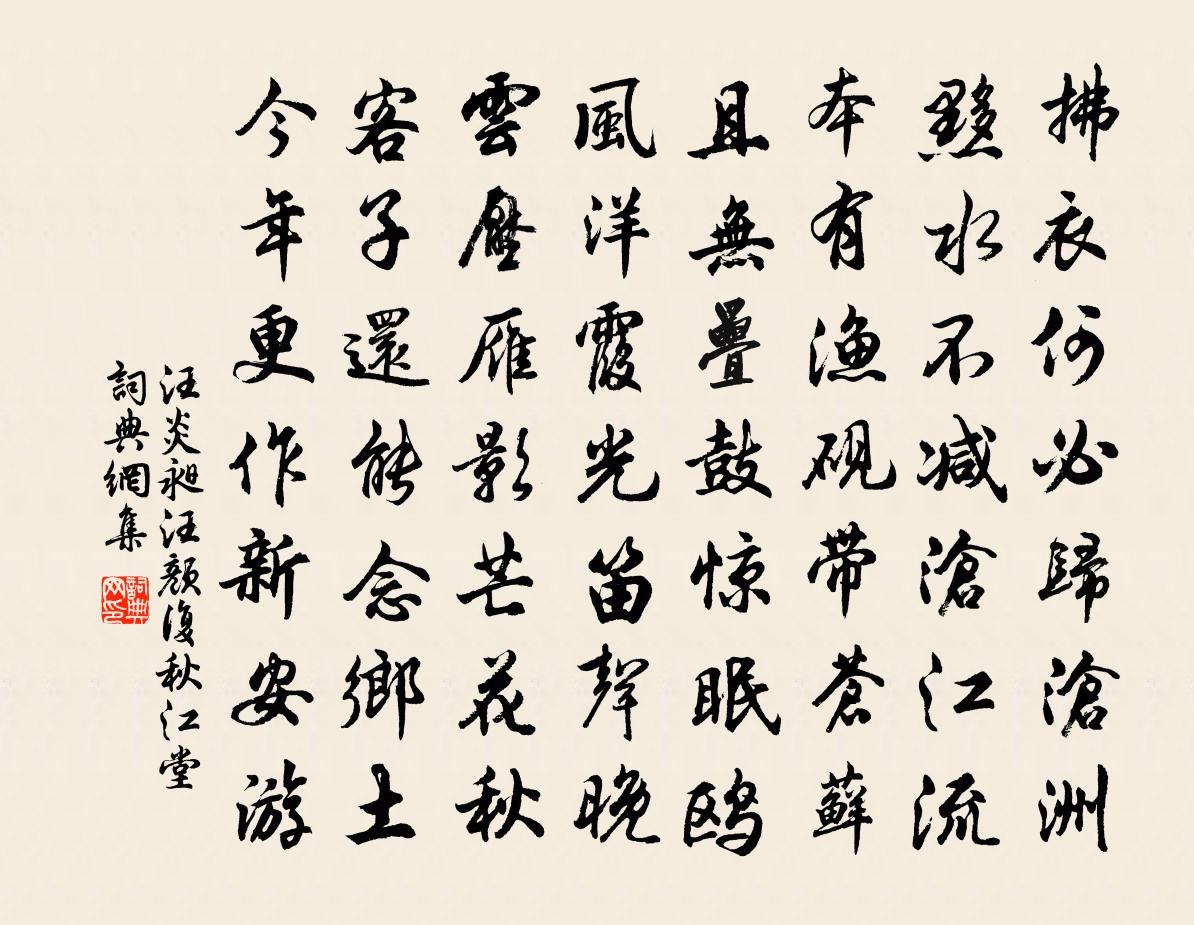 拂衣何必歸滄洲
黟水不减滄江流
本有漁硯帶蒼蘚
且無疊鼓惊眠鸥
風洋霞光笛聲晚
雲壓雁影芒花秋
客子還能念鄉土
今年更作新安游
汪炎昶汪顏復秋江堂
詞典網集
詞典网印